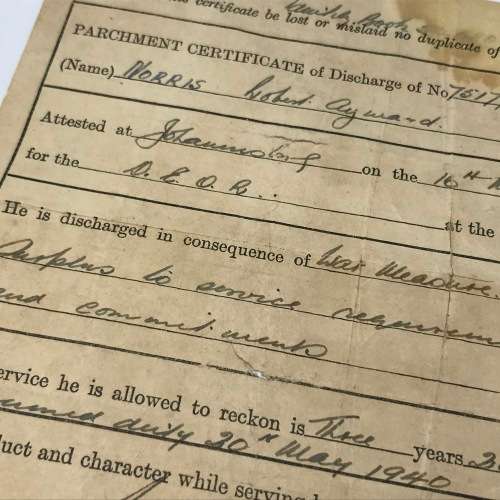 his certificate be lost or mislaid no duplicate of
PARCHMENT CERTIFICATE of Discharge of No 7517
(Name) NORRIS Robert Aymard.
Attested at Johannesburg on the 16th
for the D.E.O.R. at the
He is discharged in consequence of War Measure
Surplus to service requirem
and commitments
ervice he is allowed to reckon is Three years 2
umed duty 20th May 1940
duct and character while serving